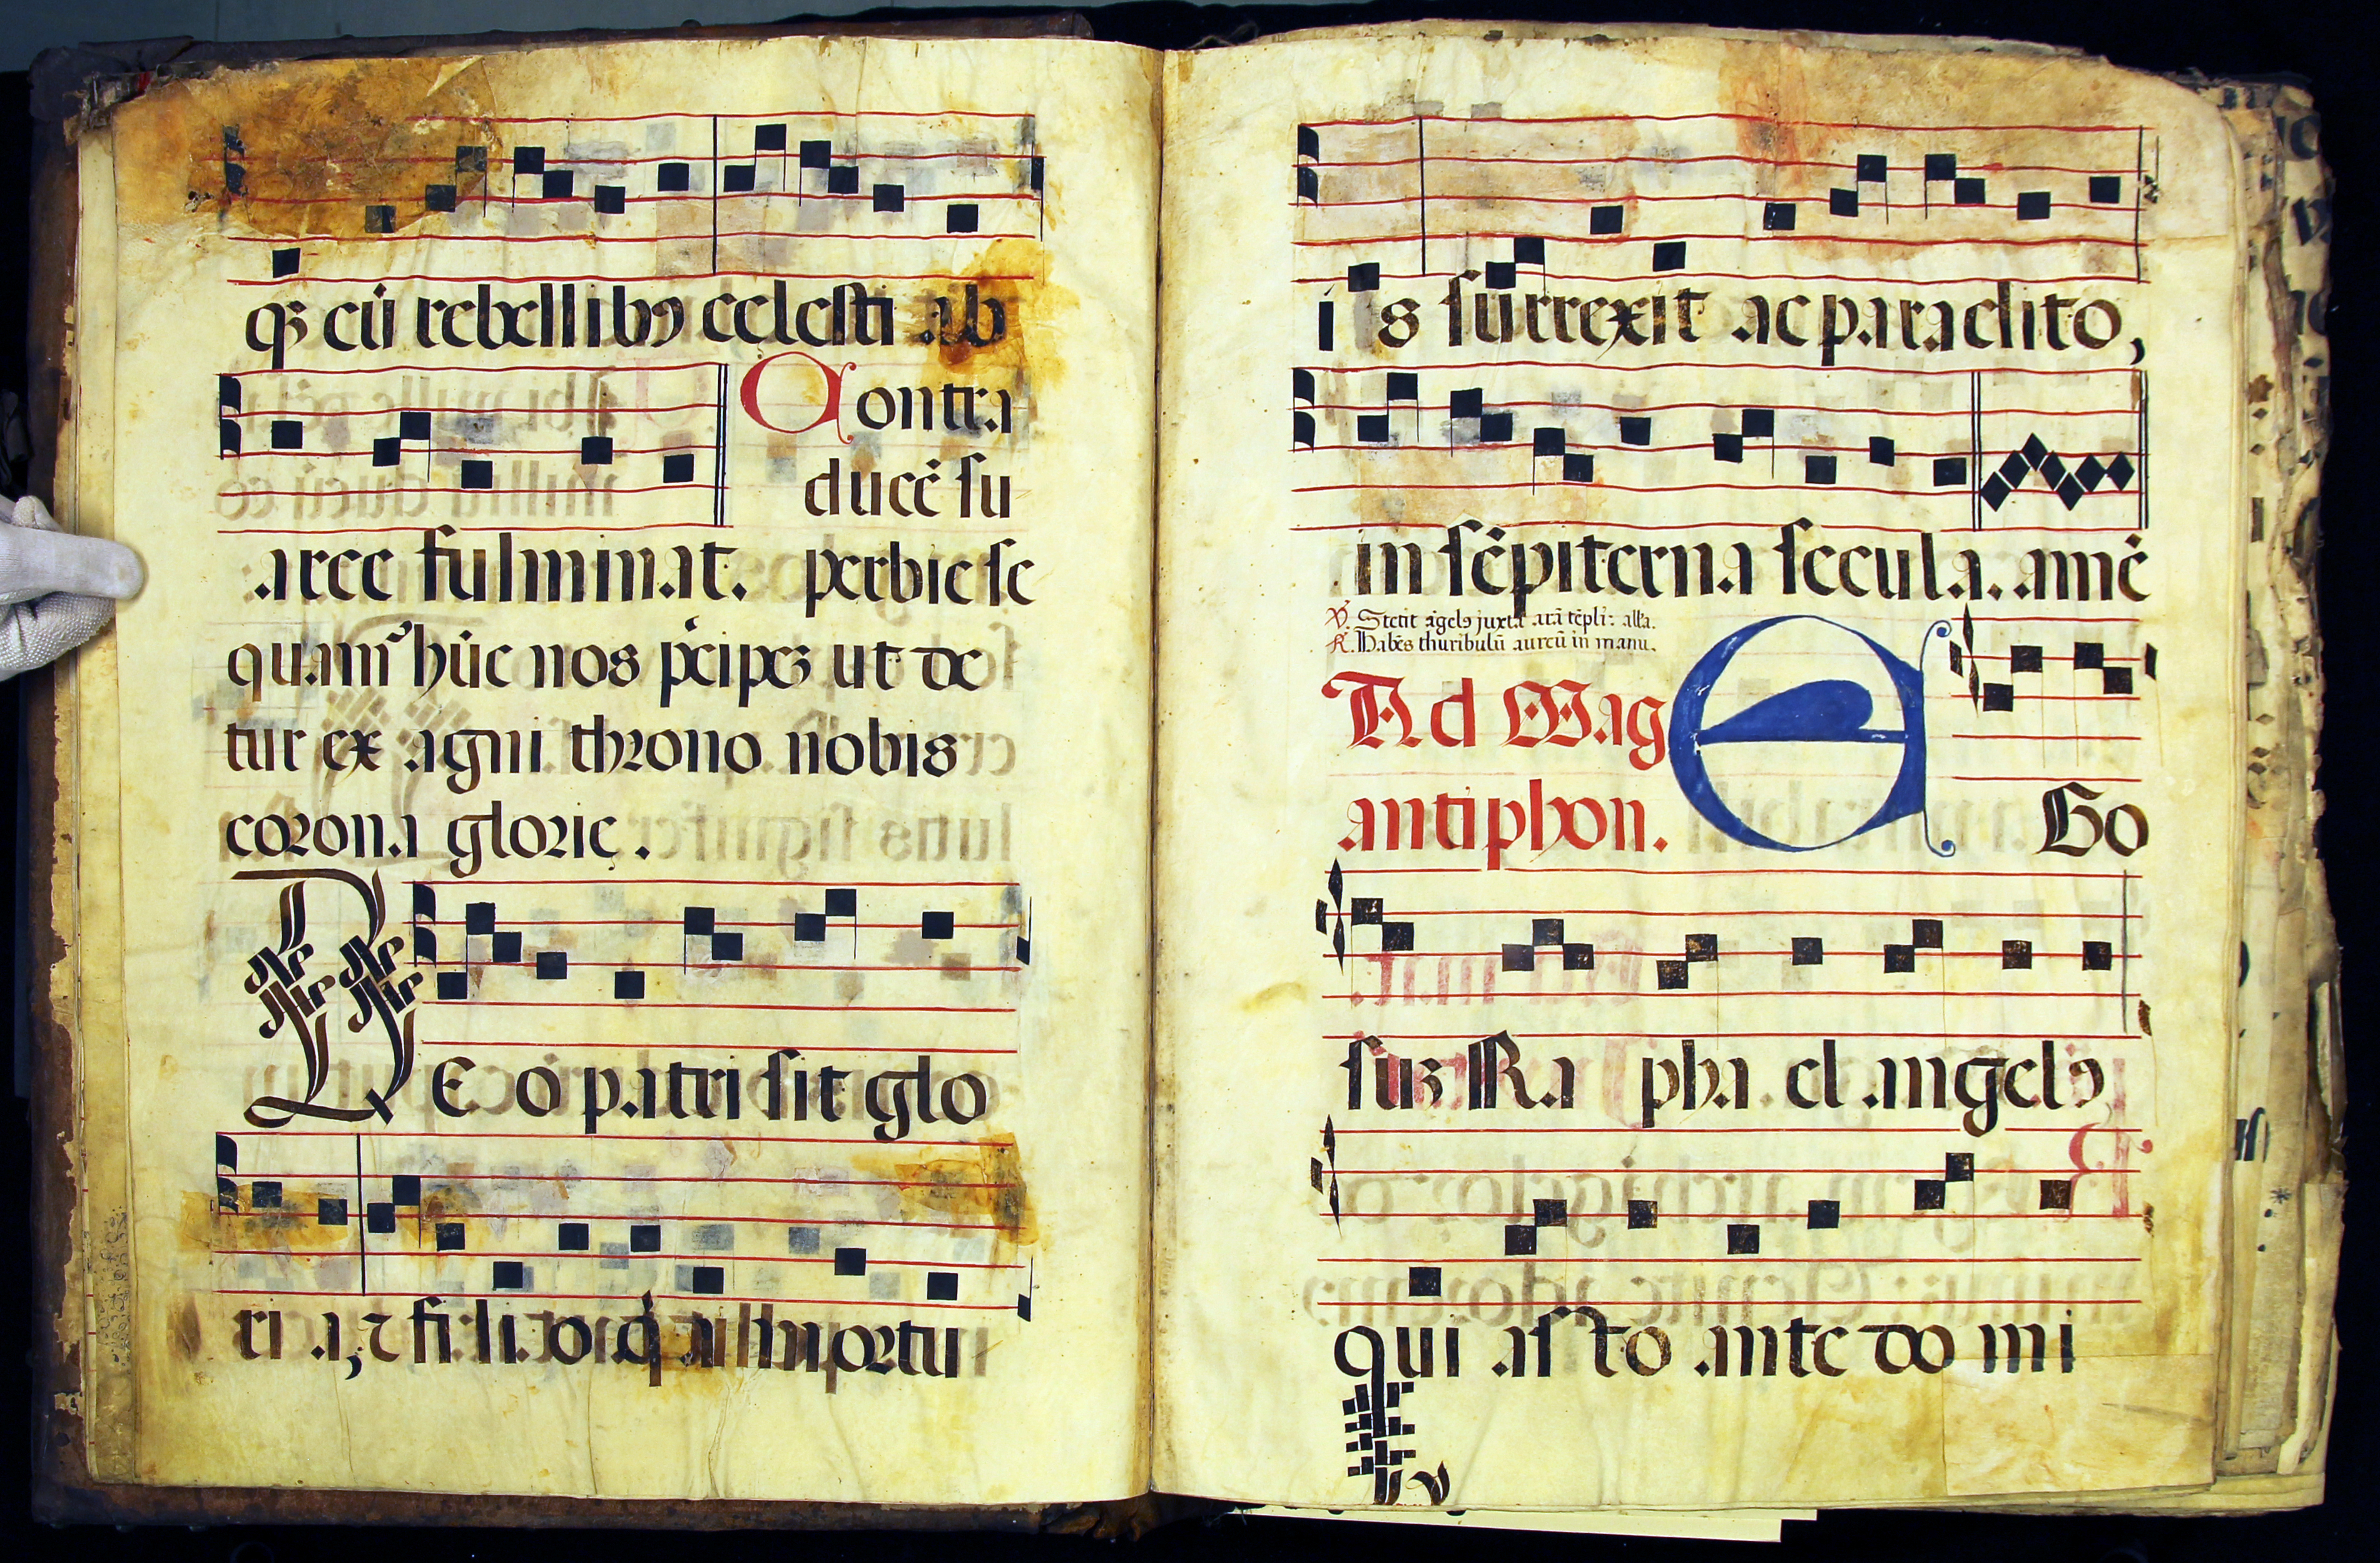 qꝫ cū rebellibꝯ cęlesti ab
Contra
ducē su
arce fulminat.  perbie se
quamꝰ hūc nos p̄cipeꝫ ut de
tur ex agni throno nobis
corona glorię.
DEo patri sit glo
ri a, ⁊ fi li o q̇ a mortu
i s surrexit ac paraclito,
in sēpiterna secula. amē
℣. Stetit āgelꝯ juxta arā tēpli: all'a.
℟. Habēs thuribulū aureū in manu.
Ad Mag
antiphon.
E Go
suꝫ Ra pha el angelꝯ
qui as to ante do mi